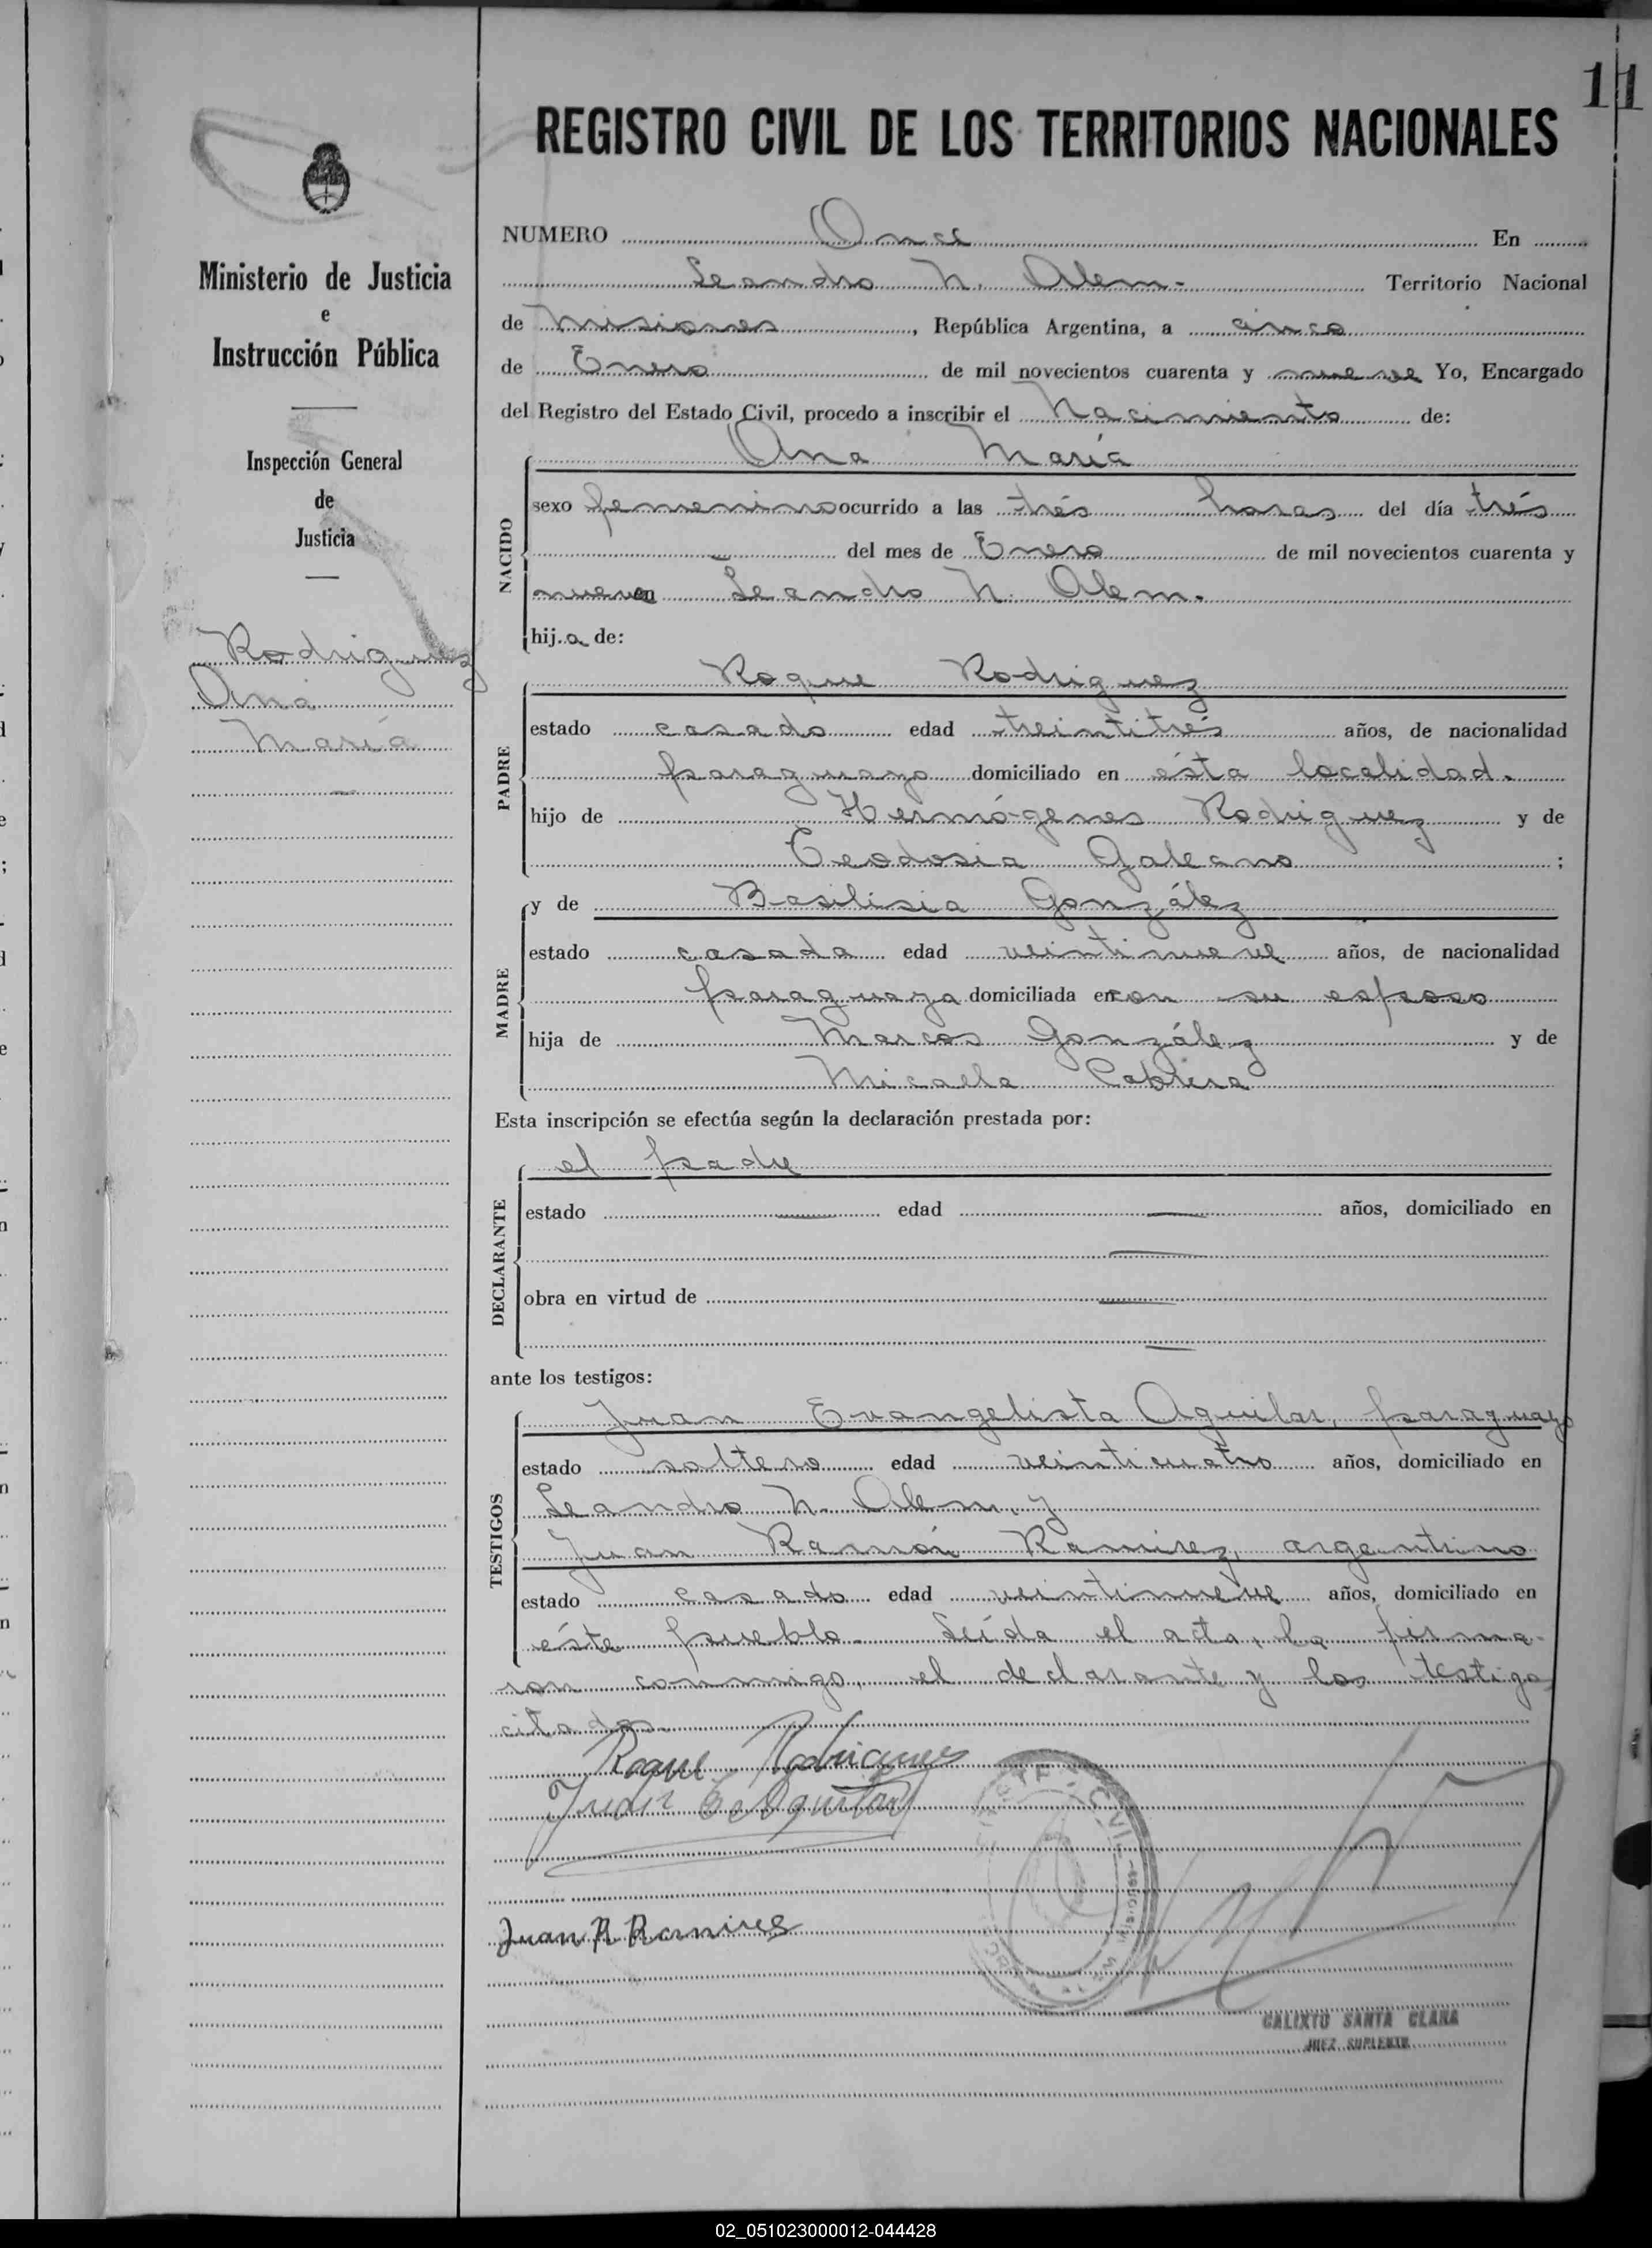 11
REGISTRO CIVIL DE LOS TERRITORIOS NACIONALES
Ministerio de Justicia
e
Instrucción Pública
Inspección General
de
Justicia
Rodriguez
Ana
María
NUMERO Once En
Leandro N. Alem.- Territorio Nacional
de Misiones, República Argentina, a cinco
de Enero de mil novecientos cuarenta y nueve Yo, Encargado
del Registro del Estado Civil, procedo a inscribir el Nacimiento de:
NACIDO
Ana María
sexo femenino ocurrido a las trés horas del día trés
del mes de Enero de mil novecientos cuarenta y
nueve en Leandro N. Alem.
hij.a de:
PADRE
Roque Rodriguez
estado casado edad treintitrés años, de nacionalidad
paraguayo domiciliado en ésta localidad.
hijo de Hermógenes Rodriguez y de
Teodosia Galeano ;
MADRE
y de Basilisia González
estado casada edad veintinueve años, de nacionalidad
paraguaya domiciliada en con su esposo
hija de Marcos González y de
Micaela Cabrera
Esta inscripción se efectúa según la declaración prestada por:
DECLARANTE
el padre
estado edad años, domiciliado en
obra en virtud de
ante los testigos:
TESTIGOS
Juan Evangelista Aguilar, paraguayo
estado soltero edad veinticuatro años, domiciliado en
Leandro N. Alem, y
Juan Ramón Ramirez, argentino
estado casado edad veintinueve años, domiciliado en
éste pueblo. Leída el acta, la firma-
ron conmigo, el declarante y los testigos
citados.
Roque Rodrigues
Juan E Aguilar
Juan R Ramires
CALIXTO SANTA CLARA
JUEZ SUPLENTE
02_051023000012-044428